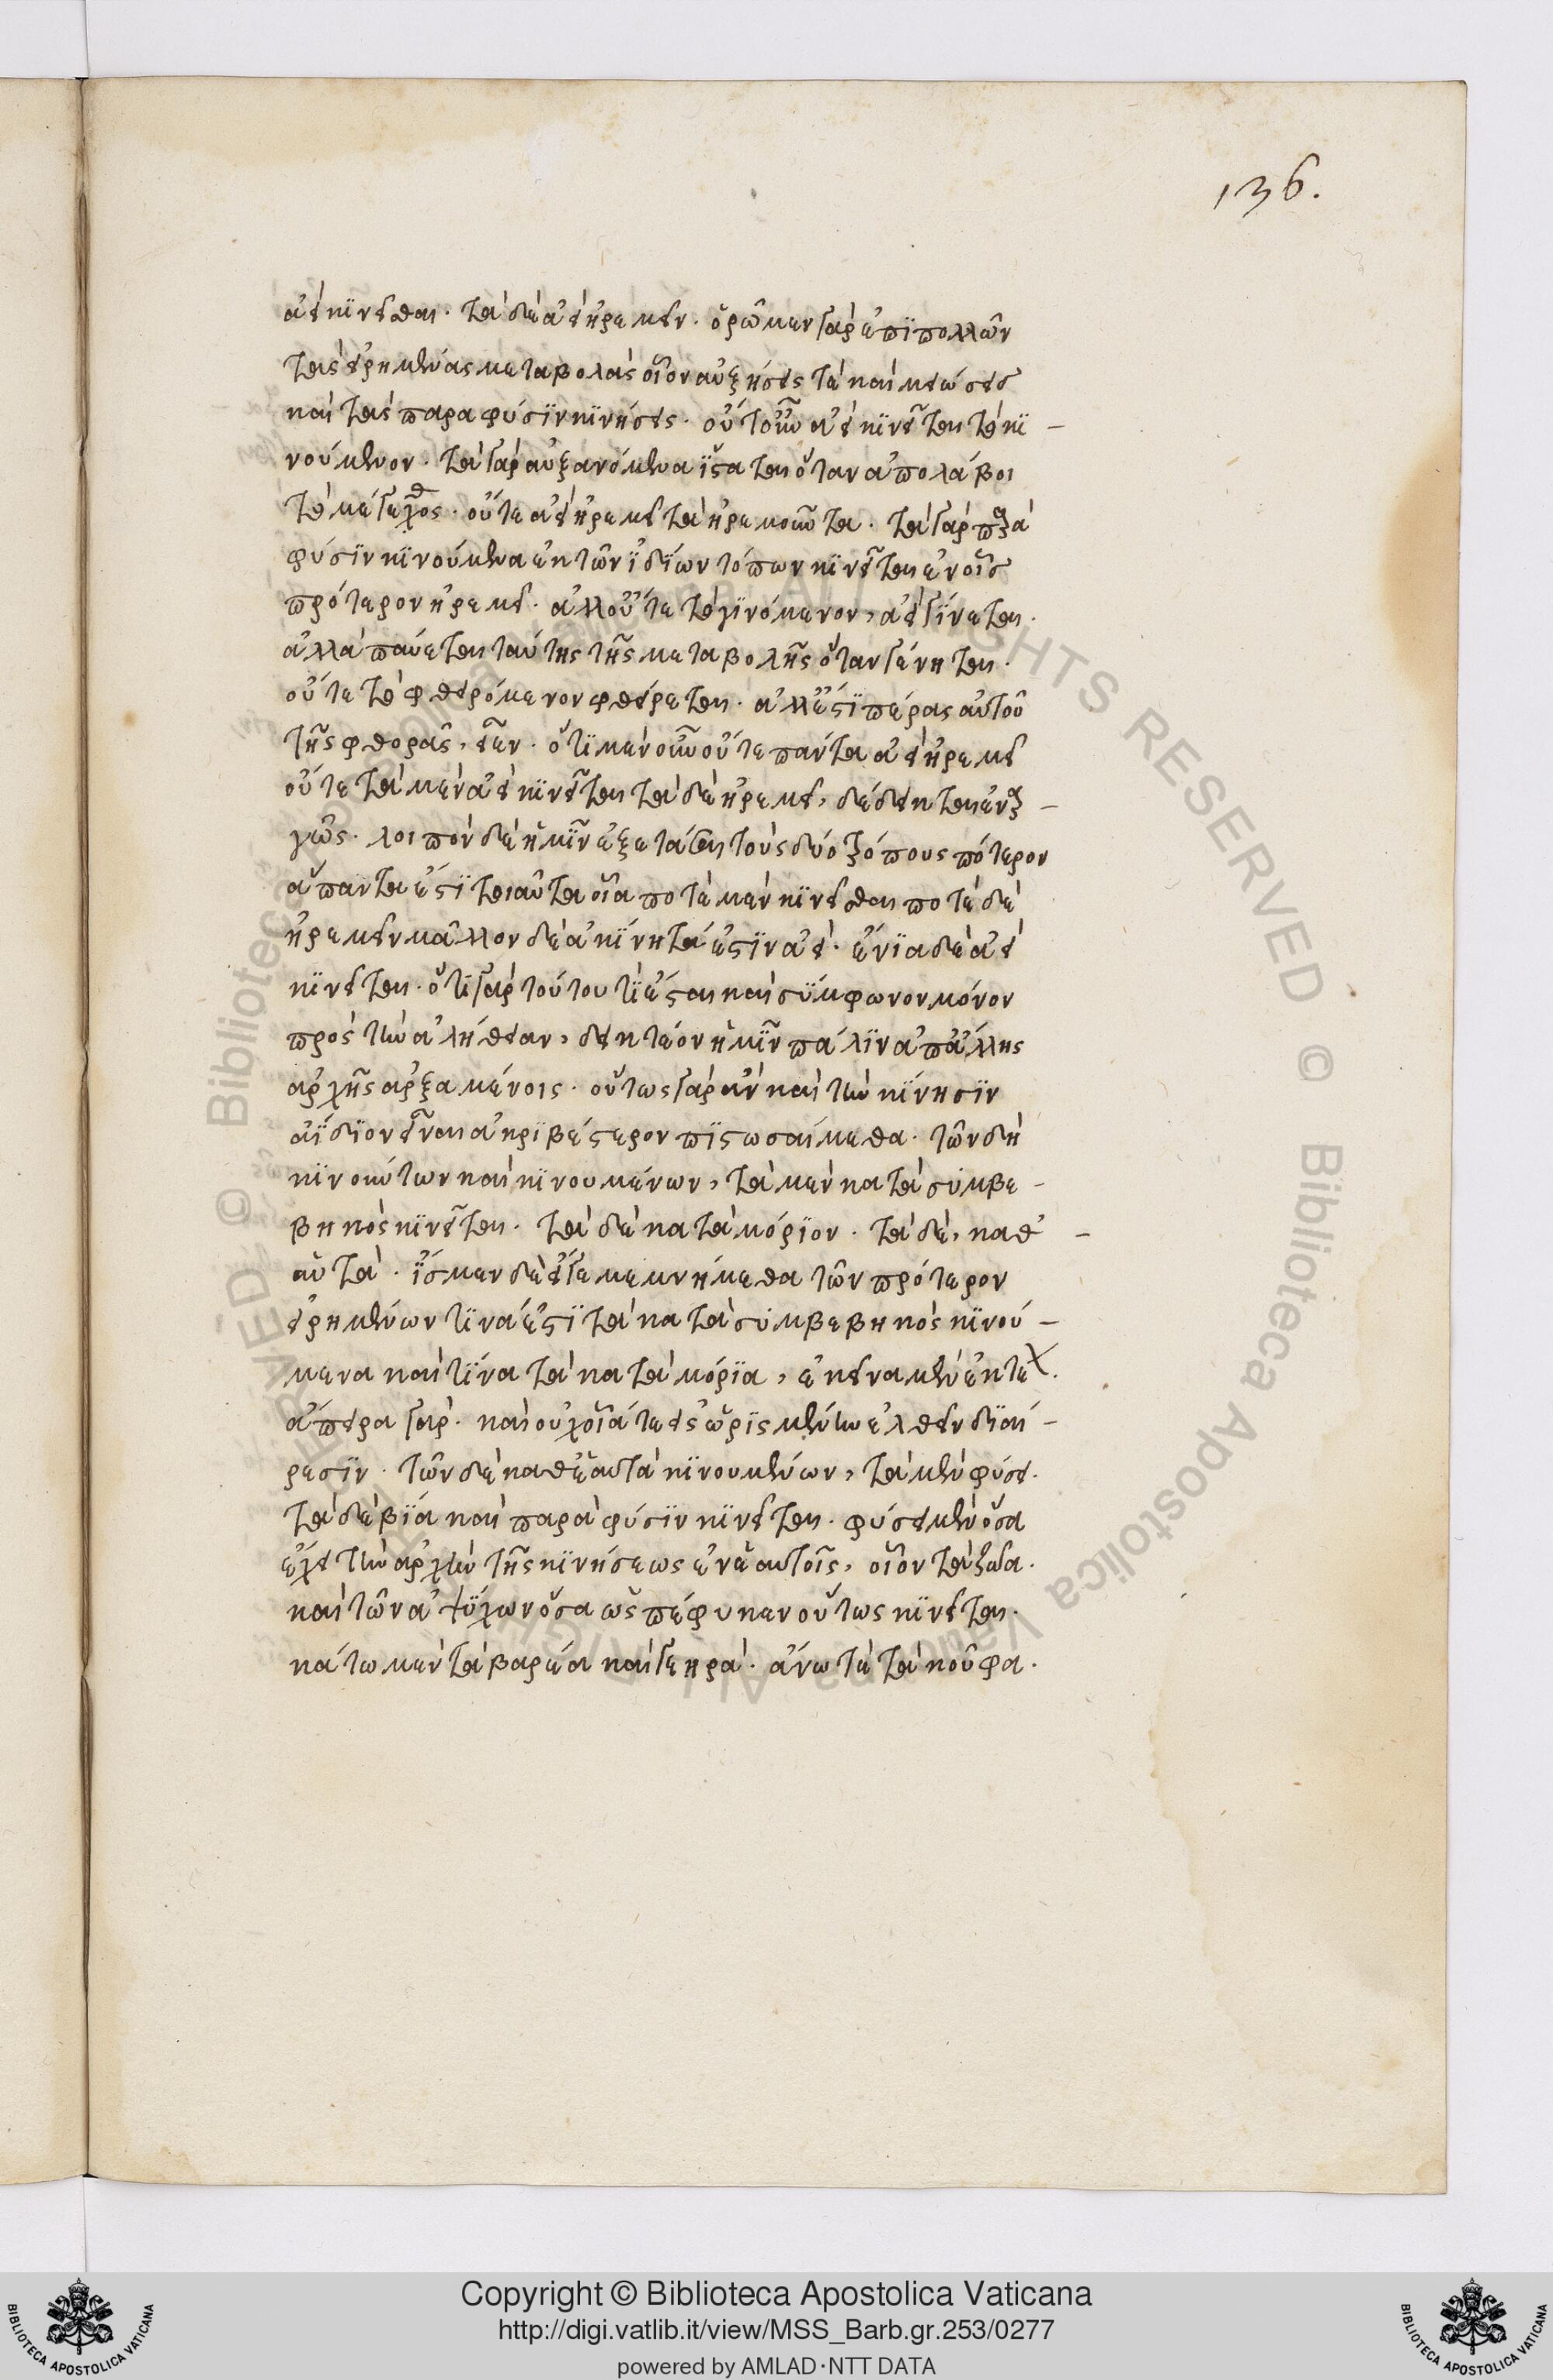 136.
ἀεὶ κινεῖσθαι. τὰ δὲ ἀεὶ ἠρεμεῖν. ὁρῶμεν γὰρ ἐπὶ πολλῶν
τὰς εἰρημένας μεταβολὰς οἷον αὐξήσεις τὲ καὶ μειώσεις
καὶ τὰς παρὰ φύσιν κινήσεις. οὔτ' οὖν ἀεὶ κινεῖται τὸ κι-
νούμενον. τὰ γὰρ αὐξανόμενα ἵσταται ὅταν ἀπολάβοι
τὸ μέγεθος. οὔτε ἀεὶ ἠρεμεῖ τὰ ἠρεμοῦντα. τὰ γὰρ παρὰ
φύσιν κινούμενα ἐκ τῶν ἰδίων τόπων κινεῖται ἐν οἷς
πρότερον ἠρέμει. ἀλλ' οὔτε τὸ γινόμενον, ἀεὶ γίνεται.
ἀλλὰ παύεται ταύτης τῆς μεταβολῆς ὅταν γένηται.
οὔτε τὸ φθειρόμενον φθείρεται. ἀλλ' ἔστι πέρας αὐτοῦ
τῆς φθορᾶς, εἶεν. ὅτι μὲν οὖν οὔτε πάντα ἀεὶ ἠρεμεῖ
οὔτε τὰ μὲν ἀεὶ κινεῖται τὰ δὲ ἠρεμεῖ, δέδεικται ἐναρ-
γῶς. λοιπὸν δὲ ἡμῖν ἐξετάσαι τοὺς δύο τρόπους πότερον
ἅπαντα ἐστὶ τοιαῦτα οἷα ποτὲ μὲν κινεῖσθαι ποτὲ δὲ
ἠρεμεῖν μᾶλλον δὲ ἀκίνητά ἐστιν ἀεὶ. ἔνια δὲ ἀεὶ
κινεῖται. ὅτι γὰρ τούτου τι ἔσται καὶ σύμφωνον μόνον
πρὸς τὴν ἀλήθειαν, δεικτέον ἡμῖν πάλιν ἀπ' ἄλλης
ἀρχῆς ἀρξαμένοις. οὕτως γὰρ ἂν καὶ τὴν κίνησιν
ἀΐδιον εἶναι ἀκριβέστερον πιστωσαίμεθα. τῶν δὴ
κινούντων καὶ κινουμένων, τὰ μὲν κατὰ συμβε-
βηκὸς κινεῖται. τὰ δὲ κατὰ μόριον. τὰ δὲ, καθ' -
αὑτὰ. ἴσμεν δὲ εἴγε μεμνήμεθα τῶν πρότερον
εἰρημένων τίνα ἐστὶ τὰ κατὰ συμβεβηκὸς κινού-
μενα καὶ τίνα τὰ κατὰ μόρια, ἐκεῖνα μὲν ἐκτέ.
ἄπειρα γὰρ. καὶ οὐχ οἷά τε εἰς ὡρισμένην ἐλθεῖν διαί-
ρεσιν. τῶν δὲ καθ' ἑαυτὰ κινουμένων, τὰ μὲν φύσει.
τὰ δὲ βίᾳ καὶ παρὰ φύσιν κινεῖται. φύσει μὲν ὅσα
ἔχει τὴν ἀρχὴν τῆς κινήσεως ἐν ἑαυτοῖς, οἷον τὰ ζῶα.
καὶ τῶν ἀψύχων ὅσα ὡς πέφυκεν οὕτως κινεῖται.
κάτω μὲν τὰ βαρέα καὶ γεηρὰ. ἄνω τὲ τὰ κοῦφα.
Copyright © Biblioteca Apostolica Vaticana
http://digi.vatlib.it/view/MSS_Barb.gr.253/0277
powered by AMLAD·NTT DATA